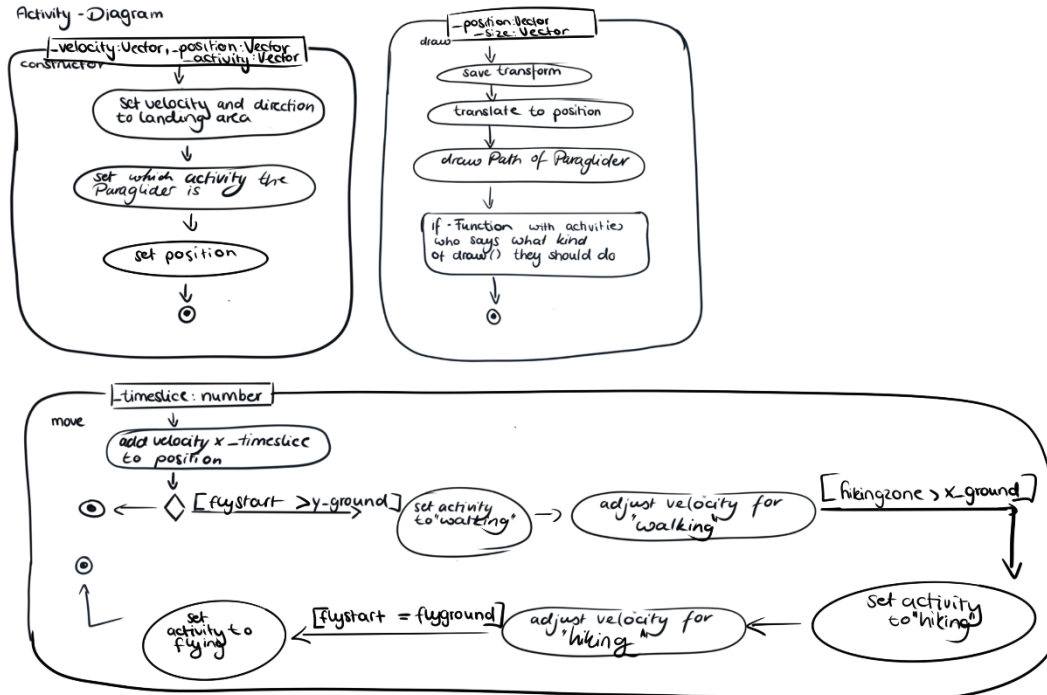 Activity - Diagram
_velocity:Vector, _position:Vector
_activity:Vector
constructor
set velocity and direction
to landing area
set which activity the
Paraglider is
set position
_position:Vector
_size:Vector
draw
save transform
translate to position
draw Path of Paraglider
if-Function with activities
who says what kind
of draw() they should do
_timeslice: number
move
add velocity x _timeslice
to position
[flystart >y-ground]
set activity
to "walking"
adjust velocity for
"walking"
[hikingzone > x_ground]
set activity
to "hiking"
adjust velocity for
"hiking"
[flystart = flyground]
set
activity to
flying